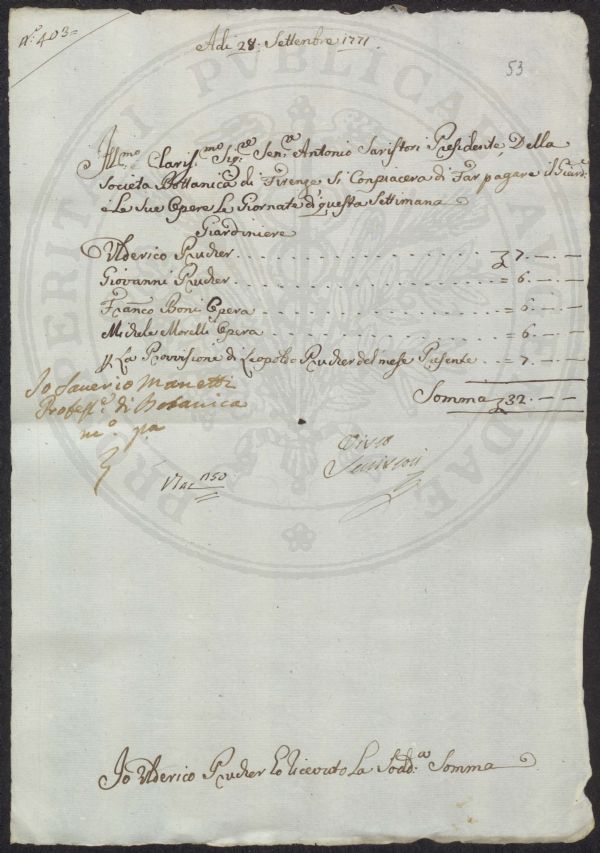 N.º 403=
Adi 28: Settenbre 1771.
53
Ill.mo Claris.mo Sig.re Sen.e Antonio Saristori Presidente Della
Societa Bottanica di Firenze Si Conpiacera di Far pagare il Giard:
e Le Sue Opere Le Giornate di questa Settimana
Giardiniere
Ulderico Rucher . . . 7. — —
Giovanni Rucher . . . = 6. — —
Franco Boni Opera . . . = 6. — —
Michele Morelli Opera . . . = 6. — —
La Provisione di Leopoldo Rucher del mese Presente . . . = 7. — —
Somma 32. — —
Io Saverio Manetti
Profess.e di Botanica
m.o pa
Visto
Io Ulderico Rucher ho riceuto La Sodd.a Somma